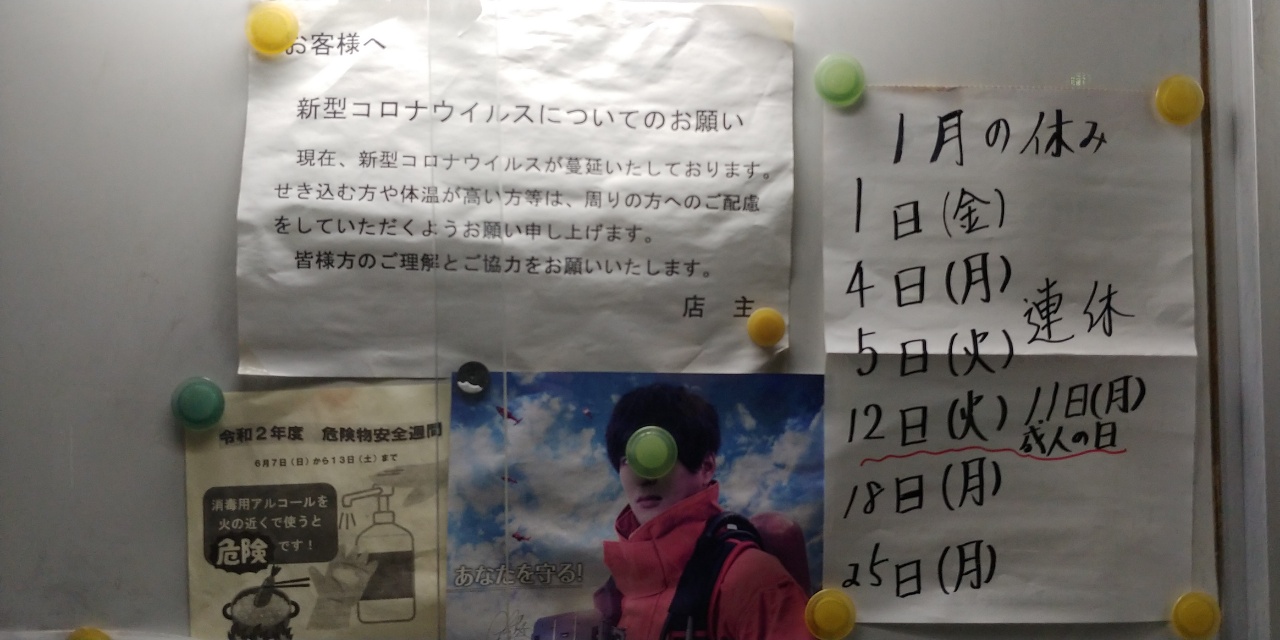 お客様へ
新型コロナウイルスについてのお願い
現在、新型コロナウイルスが蔓延いたしております。
せき込む方や体温が高い方等は、周りの方へのご配慮
をしていただくようお願い申し上げます。
皆様方のご理解とご協力をお願いいたします。
店 主
1月の休み
1日(金)
4日(月)
5日(火) 連休
12日(火) 11日(月)
成人の日
18日(月)
25日(月)
令和2年度 危険物安全週間
6月7日(日)から13日(土)まで
消毒用アルコールを
火の近くで使うと
危険です!
あなたを守る!